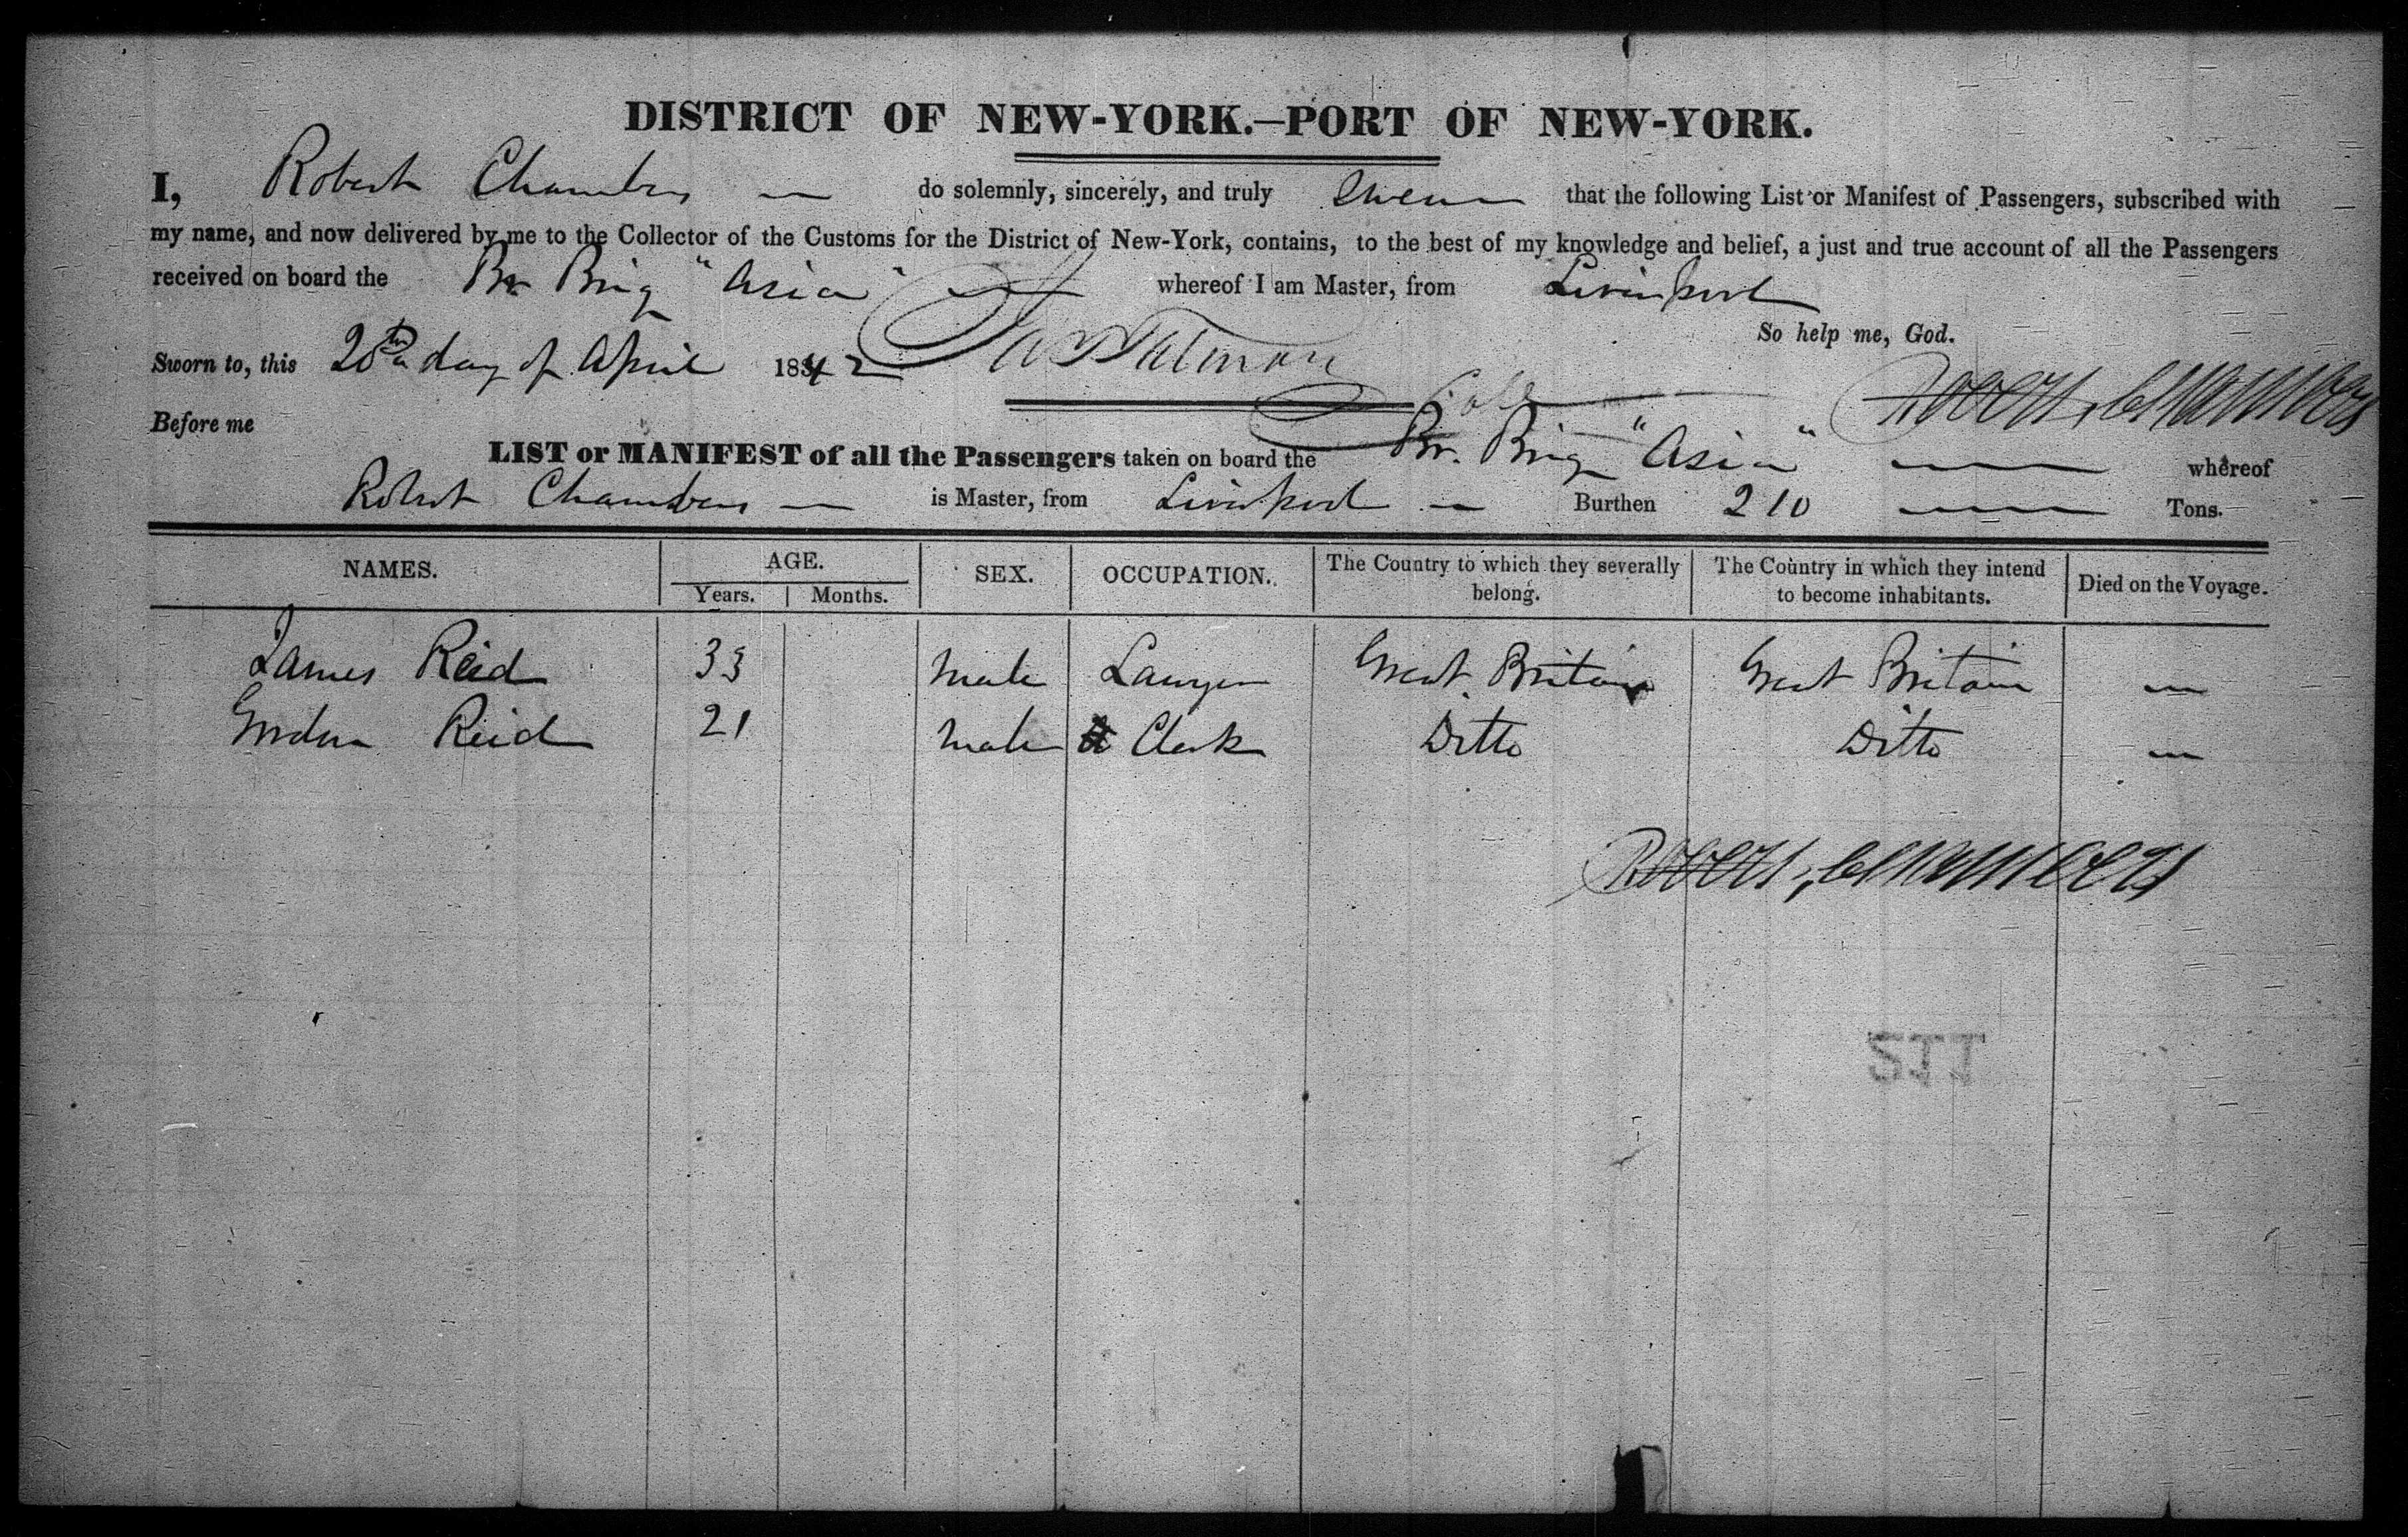 DISTRICT OF NEW-YORK.—PORT OF NEW-YORK.
I, Robert Chambers — do solemnly, sincerely, and truly Swear that the following List or Manifest of Passengers, subscribed with
my name, and now delivered by me to the Collector of the Customs for the District of New-York, contains, to the best of my knowledge and belief, a just and true account of all the Passengers
received on board the Br Brig "Asia" — whereof I am Master, from Liverpool
So help me, God.
Sworn to, this day of April 1842
Robert Chambers
Before me
LIST or MANIFEST of all the Passengers taken on board the Br. Brig "Asia" — whereof
Robert Chambers — is Master, from Liverpool — Burthen 210 — Tons.
NAMES. AGE. SEX. OCCUPATION. The Country to which they severally belong. The Country in which they intend to become inhabitants. Died on the Voyage.
Years. Months.
James Reid 33 Male Lawyer Great Britain Great Britain —
Gordon Reid 21 Male Clerk Ditto Ditto —
Robert Chambers